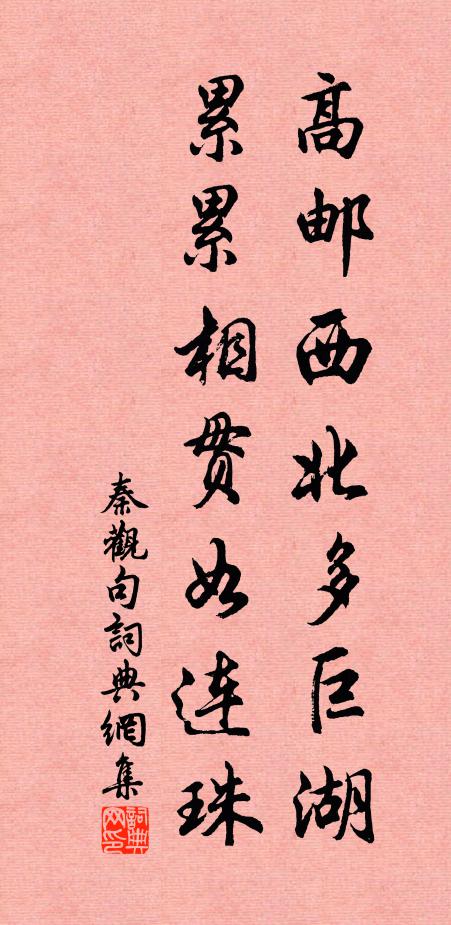 高邮西北多巨湖
累累相贯如连珠
秦觀句詞典網集
詞典网印